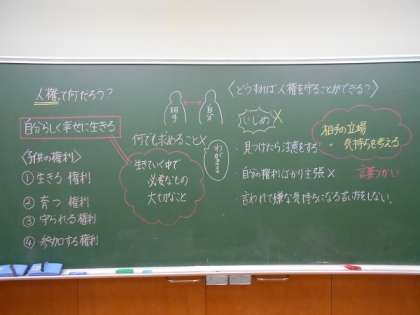 人権って何だろう?
自分らしく幸せに生きる
〈子供の権利〉
①生きる 権利
②育つ 権利
③守られる権利
④参加する権利
相手
自分
何でも求めること×
わがまま
生きていく中で
必要なもの
大切なこと
〈どうすれば人権を守ることができる?〉
いじめ×
・見つけたら注意をする
・自分の権利ばかり主張×
・言われて嫌な気持ちになる言い方をしない。
相手の立場
気持ちを考える
言葉づかい